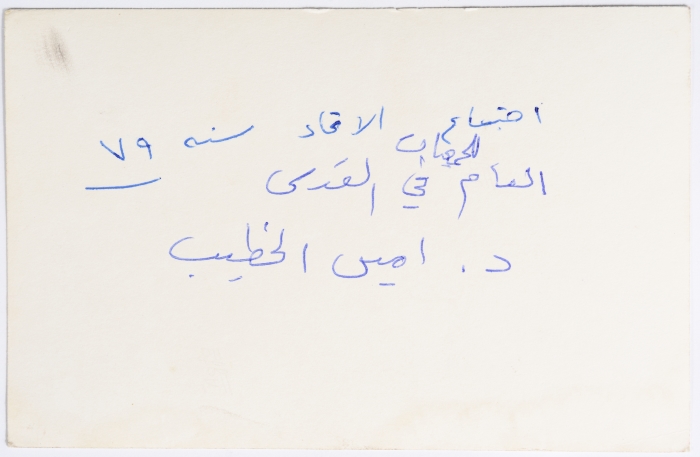 اجتماع الاتحاد سنه ٧٩
للجمعيات
العام في القدس
د. امين الخطيب